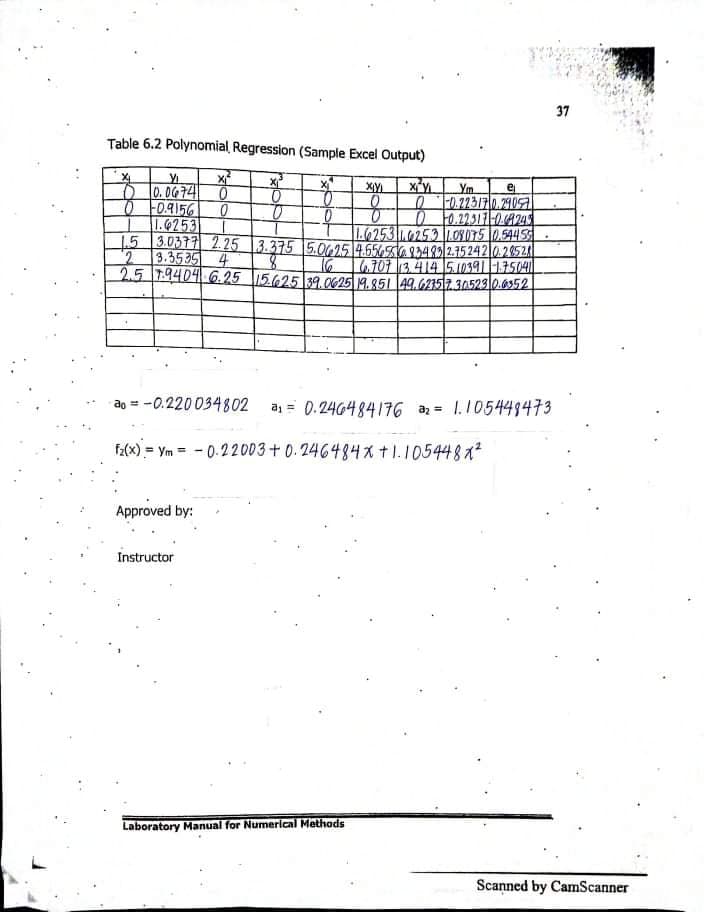 37
Table 6.2 Polynomial Regression (Sample Excel Output)
xi yi xi² xi³ xi⁴ xiyi xi²yi ym ei
0 0.0674 0 0 0 0 0 -0.22317 0.29057
0 -0.9156 0 0 0 0 0 -0.22317 -0.69243
1 1.6253 1 1 1 1.6253 1.6253 1.08075 0.54455
1.5 3.0377 2.25 3.375 5.0625 4.55655 6.83483 2.75242 0.28528
2 3.3535 4 8 16 6.707 13.414 5.10391 -1.75041
2.5 7.9404 6.25 15.625 39.0625 19.851 49.6275 7.30523 0.6352
a₀ = -0.220034802 a₁ = 0.246484176 a₂ = 1.105448473
f₂(x) = ym = -0.22003 + 0.246484x + 1.105448x²
Approved by:
Instructor
Laboratory Manual for Numerical Methods
Scanned by CamScanner